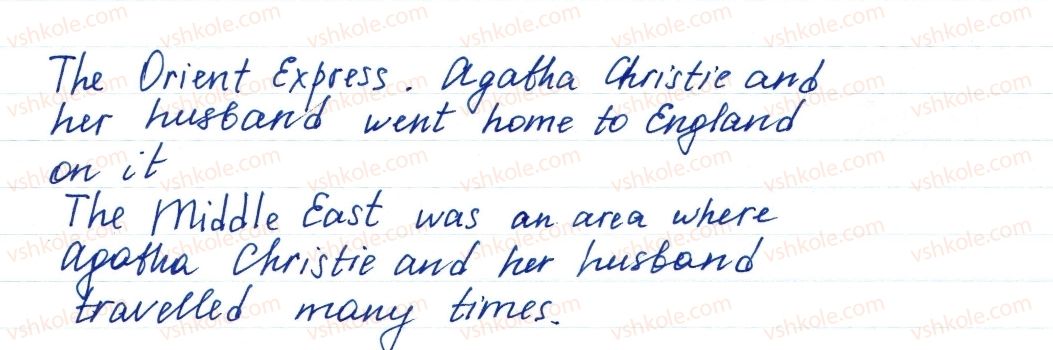 The Orient Express. Agatha Christie and
her husband went home to England
on it
The Middle East was an area where
Agatha Christie and her husband
travelled many times.